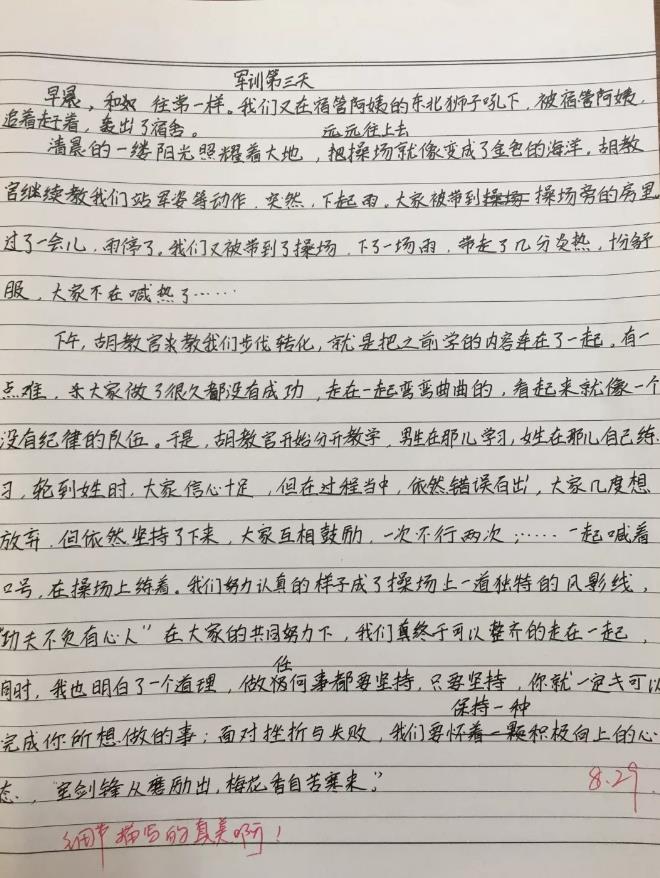 军训第三天
早晨，和以往常一样。我们又在宿管阿姨的东北狮子吼下，被宿管阿姨，
追着赶着，轰出了宿舍。 远远往上去
清晨的一缕阳光照耀着大地，把操场就像变成了金色的海洋。胡教
官继续教我们站军姿等动作，突然，下起雨。大家被带到操场操场旁的房里。
过了一会儿，雨停了。我们又被带到了操场，下了一场雨，带走了几分炎热，十份舒
服，大家不在喊热了……
下午，胡教官来教我们步伐转化，就是把之前学的内容连在了一起。有一
点难，大家做了很久都没有成功，走在一起弯弯曲曲的，看起来就像一个
没有纪律的队伍。于是，胡教官开始分开教学，男生在那儿学习，女生在那儿自己练
习，轮到女生时，大家信心十足，但在过程当中，依然错误百出，大家几度想
放弃，但依然坚持了下来，大家互相鼓励，一次不行两次；……一起喊着
口号，在操场上练着。我们努力认真的样子成了操场上一道独特的风影线，
"功夫不负有心人"在大家的共同努力下，我们真终于可以整齐的走在一起，
任
同时，我也明白了一个道理，做何事都要坚持，只要坚持，你就一定可以
保持一种
完成你所想做的事；面对挫折与失败，我们要怀着一颗积极向上的心
态，"宝剑锋从磨励出，梅花香自苦寒来。"
8.29.
细节描写的真美啊！